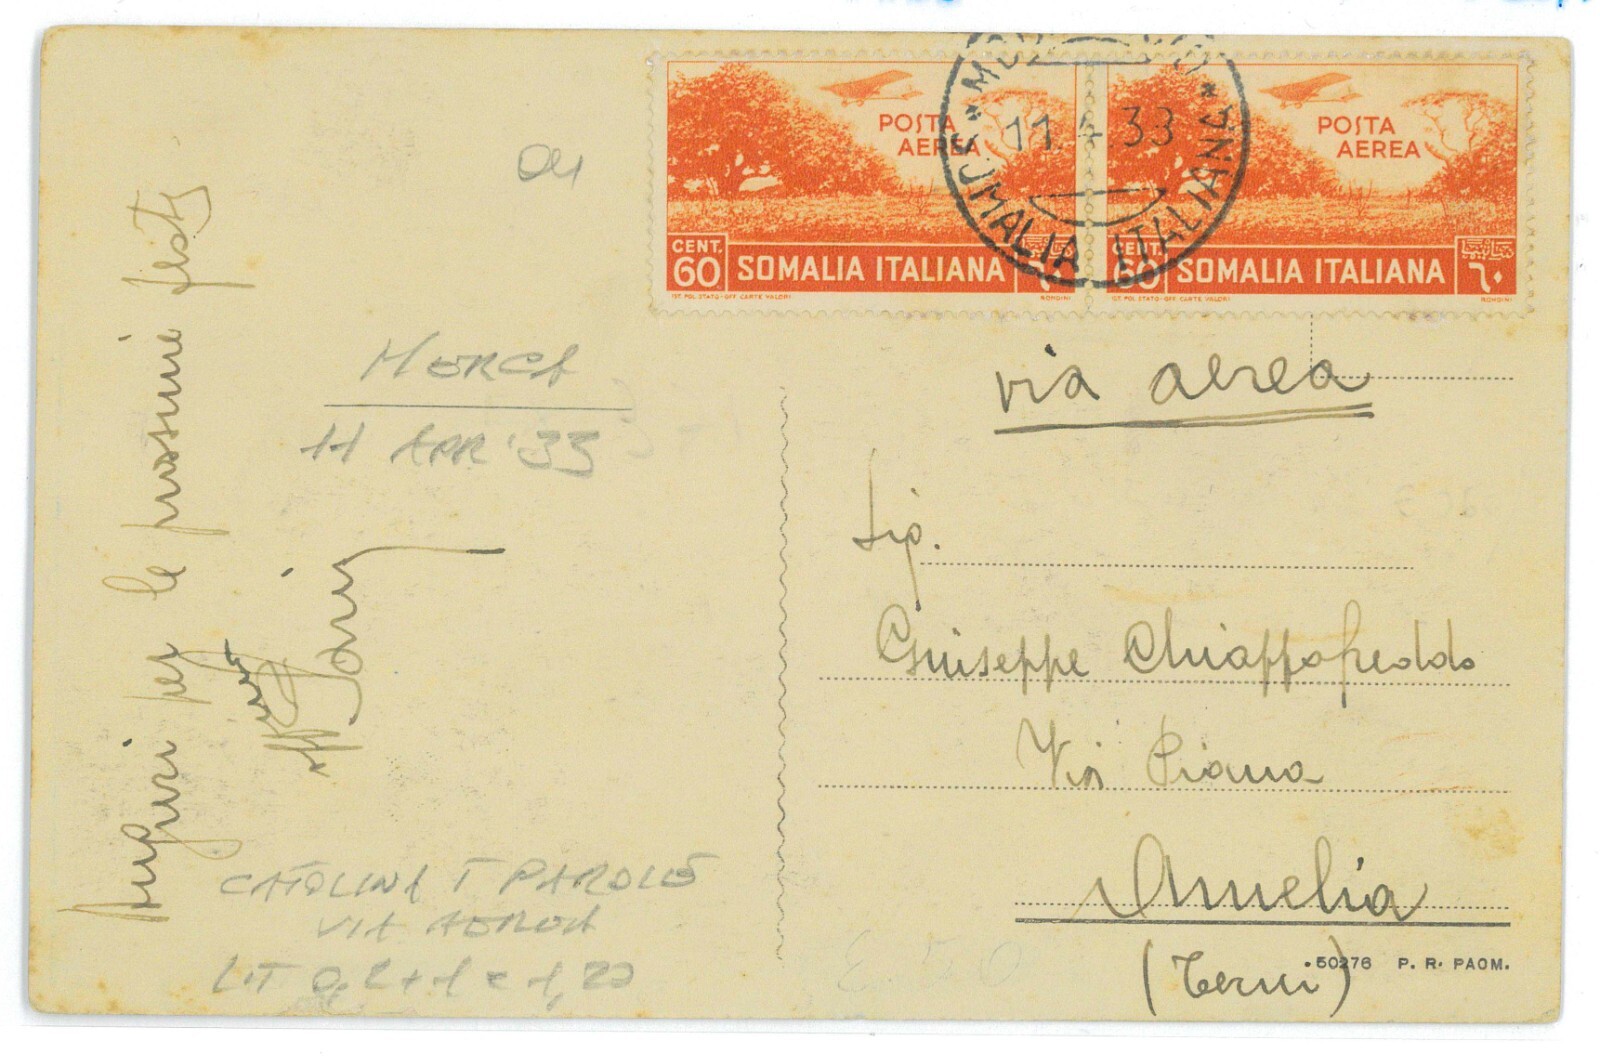 POSTA
AEREA
CENT.
60
SOMALIA ITALIANA
٦٠
IST. POL. STATO-OFF. CARTE VALORI
RONDINI
POSTA
AEREA
CENT.
60
SOMALIA ITALIANA
٦٠
IST. POL. STATO-OFF. CARTE VALORI
RONDINI
11.4.33
SOMALIA ITALIANA
via aerea
Sig.
Giuseppe Chiappafreddo
Via Piana
Amelia
(Terni)
50276 P. R. PAOM.
Auguri per le prossime feste
MERCA
11 APR '33
CATOLINA 5 PAROLE
VIA AEREA
LIT 0,2+1=1,20
E. 50